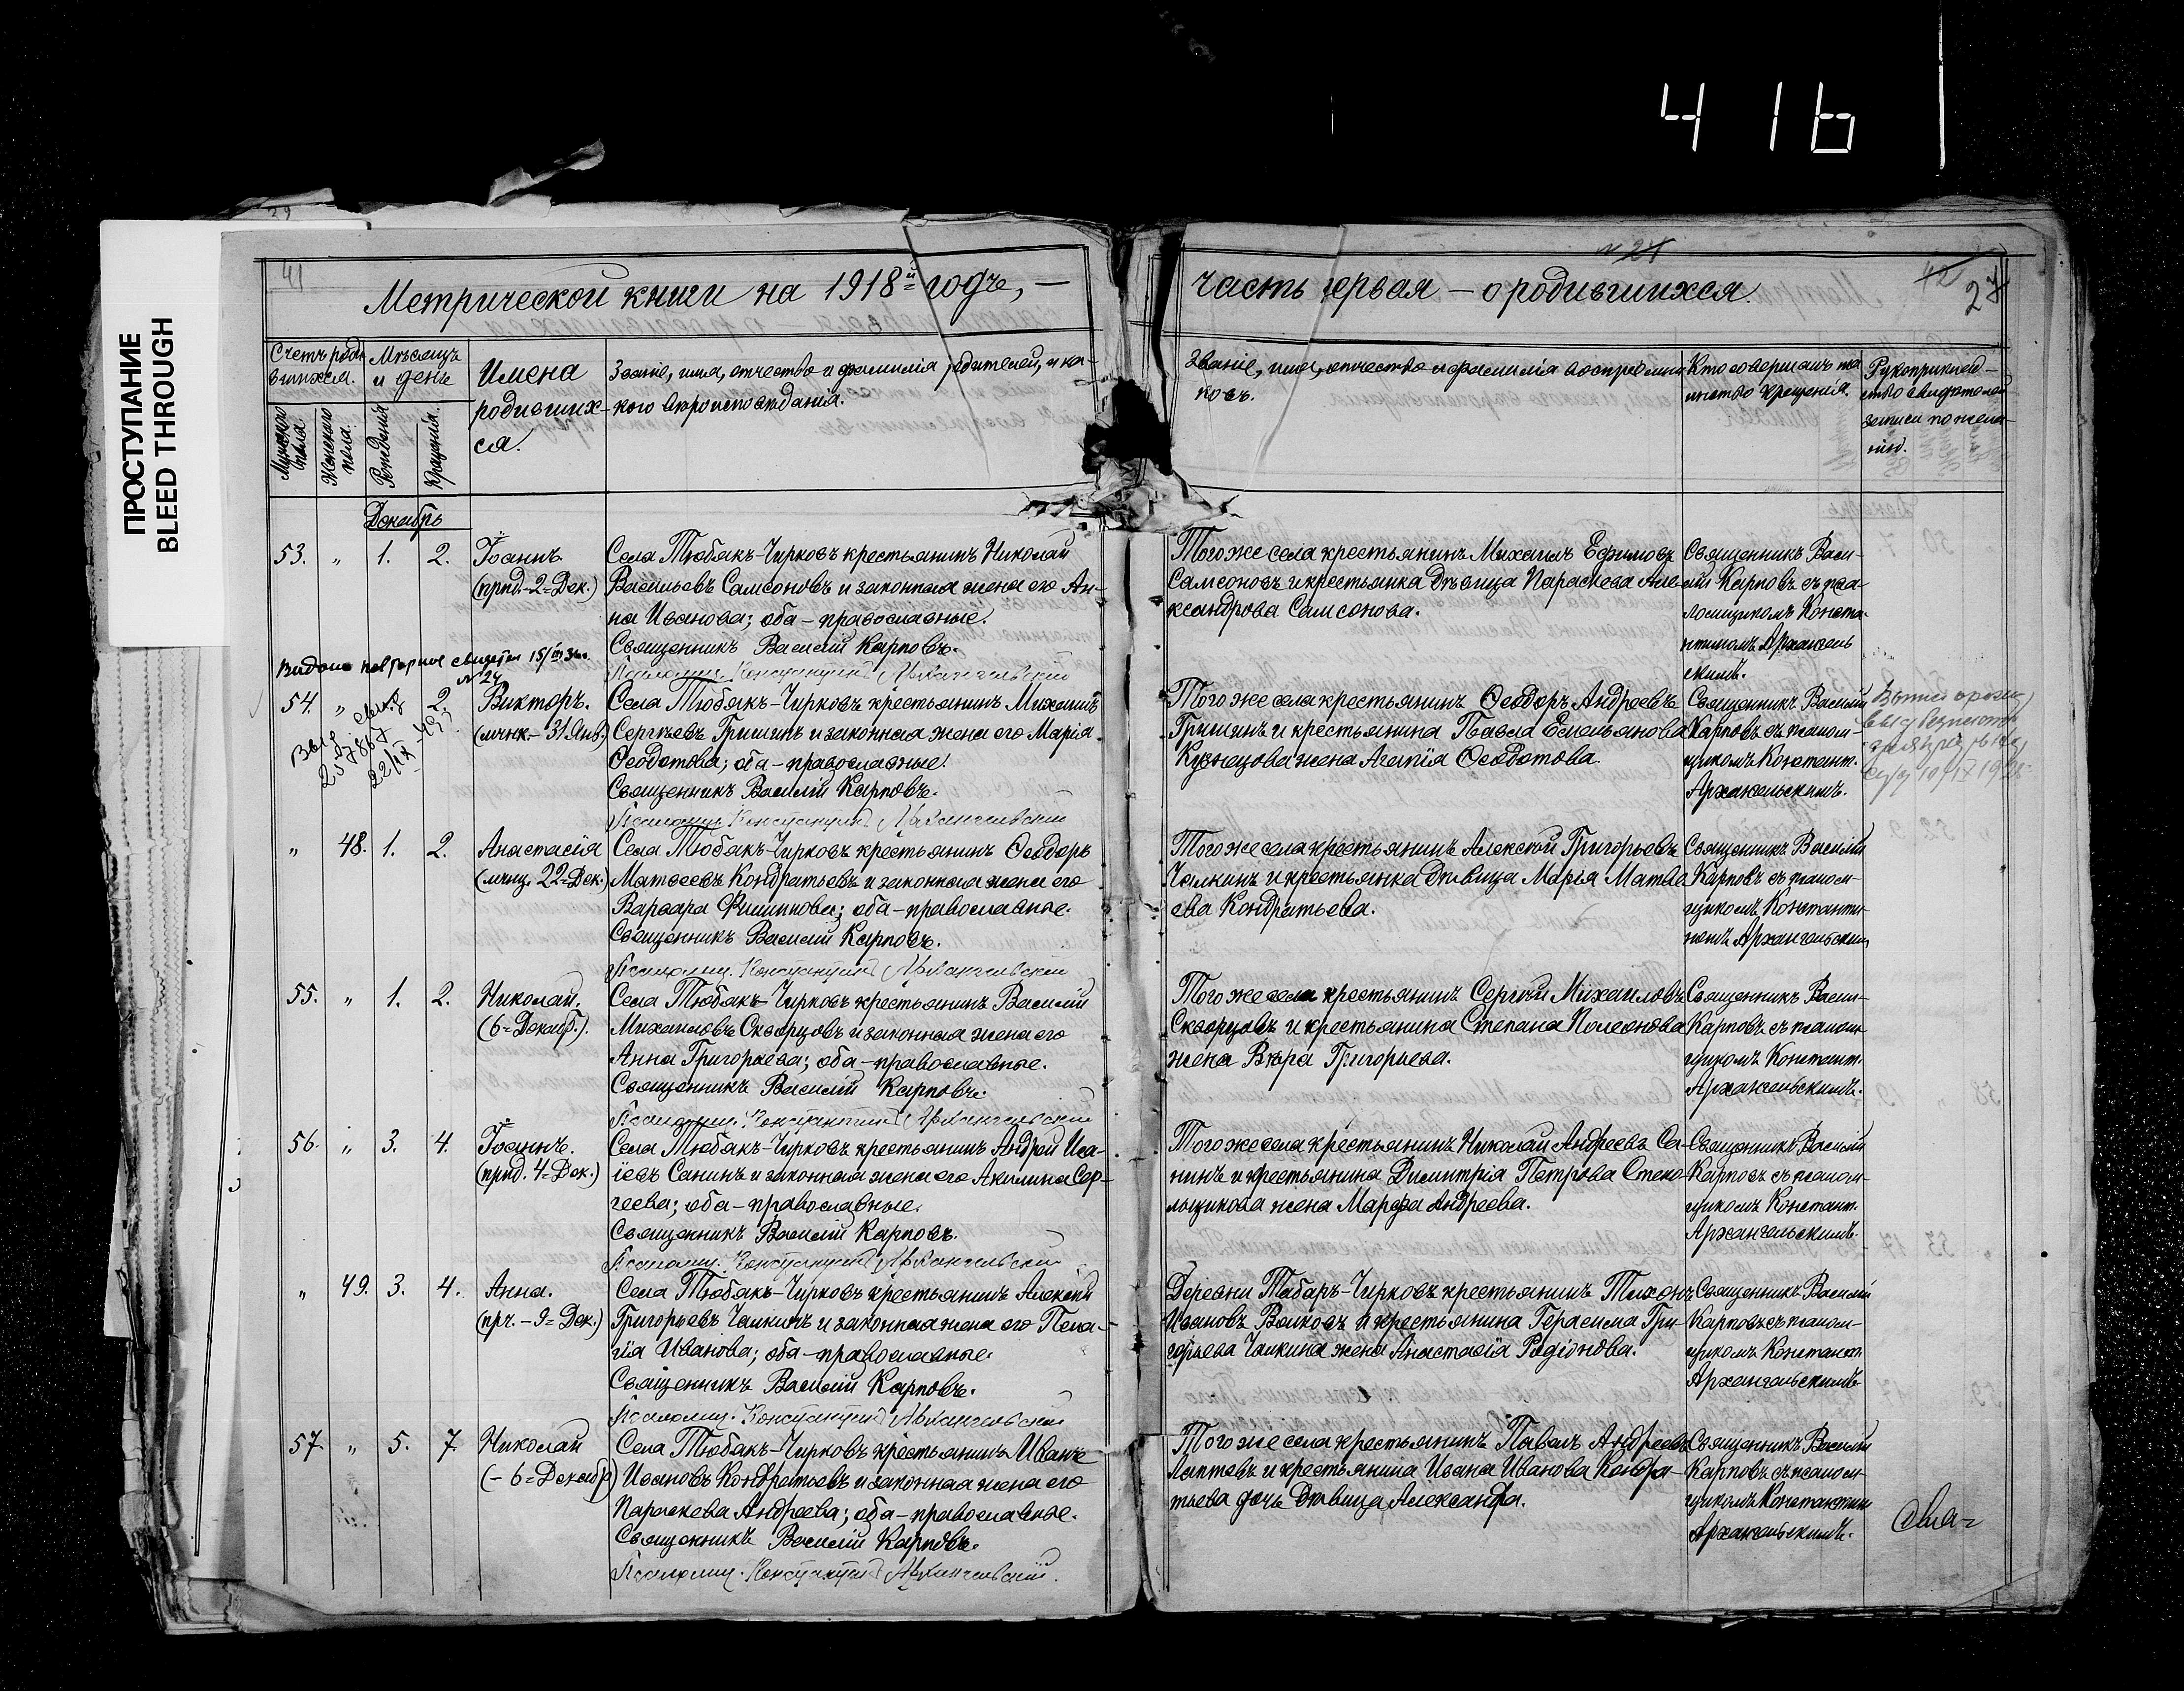 416
ПРОСТУПАНИЕ
BLEED THROUGH
41
Метрической книги на 1918й годъ, —
часть первая — о родившихся.
42
27
Счетъ роди-
вшихся.
Мужского пола.
Женскаго пола.
Мѣсяцъ
и день
Рожденія
Крещенія.
Имена
родивших-
ся.
Званіе, имя, отчество и фамилія родителей, и ка-
кого вѣроисповѣданія.
Званіе, имя, отчество и фамилія воспріемни
ковъ.
Кто совершалъ та
инство крещенія.
Рукоприклад-
ство свидѣтелей
записи по жела-
нію.
Декабрь
53. " 1. 2. Іоаннъ
(прпд.-2=Дек.)
Села Тюбякъ-Чирковъ крестьянинъ Николай
Васильевъ Самсоновъ и законная жена его Ан-
на Иванова; оба - православные.
Священникъ Василій Карповъ.
Псаломщ. Константинъ Архангельскій
Того же села крестьянинъ Михаилъ Ефимовъ
Самсоновъ и крестьянка дѣвица Параскева Але-
ксандрова Самсонова.
Священникъ Васи-
лій Карповъ съ пса-
ломщикомъ Конста-
нтиномъ Архангель
скимъ.
Выдано повторное
№ 24
54. " 2. Викторъ.
(мчнк.- 31 Янв)
выд
22/IX
Села Тюбякъ-Чирковъ крестьянинъ Михаилъ
Сергѣевъ Гришинъ и законная жена его Марія
Ѳеодотова; оба - православные.
Священникъ Василій Карповъ.
Псаломщ. Константинъ Архангельскій
Того же села крестьянинъ Ѳеодоръ Андреевъ
Гришинъ и крестьянина Павла Емельянова
Кузнецова жена Агапія Ѳеодотова.
Священникъ Василій
Карповъ съ псалом-
щикомъ Константи.
Архангельскимъ.
" 48. 1. 2. Анастасія
(мчнц. 22=Дек.)
Села Тюбякъ-Чирковъ крестьянинъ Ѳеодоръ
Матѳеевъ Кондратьевъ и законная жена его
Варвара Филиппова; оба - православные.
Священникъ Василій Карповъ.
Псаломщ. Константинъ Архангельскій
Того же села крестьянинъ Алексѣй Григорьевъ
Чалкинъ и крестьянка дѣвица Марія Матѳе
ева Кондратьева.
Священникъ Василій
Карповъ съ псалом-
щикомъ Константи-
номъ Архангельским
55. " 1. 2. Николай.
(6=Декабр.).
Села Тюбякъ-Чирковъ крестьянинъ Василій
Михаиловъ Скворцовъ и законная жена его
Анна Григорьева; оба - православные.
Священникъ Василій Карповъ.
Псаломщ. Константинъ Архангельскій
Того же села крестьянинъ Сергѣй Михаиловъ
Скворцовъ и крестьянина Степана
жена Вѣра Григорьева.
Священникъ Васи-
Карповъ съ псалом
щикомъ Констант.
Архангельскимъ.
56. " 3. 4. Іоаннъ.
(прпд. 4=Дек.)
Села Тюбякъ-Чирковъ крестьянинъ Андрей Иса-
іевъ Санинъ и законная жена его Акилина Сер-
геева; оба - православные.
Священникъ Василій Карповъ.
Псаломщ. Константинъ Архангельскій
Того же села крестьянинъ Николай Андреевъ Са-
нинъ и крестьянина Димитрія Петрова Стеко-
льщикова жена Марфа Андреева.
Священникъ Василій
Карповъ съ псалом-
щикомъ Констант.
Архангельскимъ.
" 49. 3. 4. Анна.
(прч. - 9= Дек.)
Села Тюбякъ-Чирковъ крестьянинъ Алексѣй
Григорьевъ Чалкинъ и законная жена его Пела-
гія Иванова; оба - православные.
Священникъ Василій Карповъ.
Псаломщ. Константинъ Архангельскій
Деревни Табаръ-Чирковъ крестьянинъ Тихонъ
Ивановъ Волковъ и крестьянина Герасима Гри-
горьева Чалкина жена Анастасія Родіонова.
Священникъ Василій
Карповъ съ псалом-
щикомъ Констант.
Архангельскимъ
57. " 5. 7. Николай
(- 6=Декабр)
Села Тюбякъ-Чирковъ крестьянинъ Иванъ
Ивановъ Кондратьевъ и законная жена его
Параскева Андреева; оба - православные.
Священникъ Василій Карповъ.
Псаломщ. Константинъ Архангельскій.
Того же села крестьянинъ Павелъ Андреевъ
Лаптевъ и крестьянина Ивана Иванова Кондра-
тьева дочь дѣвица Александра.
Священникъ Василій
Карповъ съ псалом-
щикомъ Константин
Архангельскимъ.